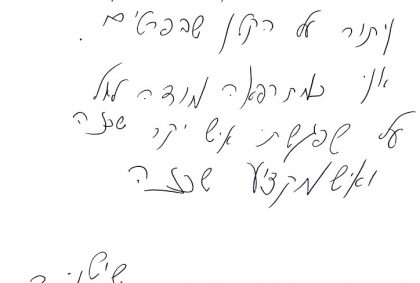 ויתור על הקטן שבפרטים.
אני כמתרפאה מודה לגלל
על שפגשתי איש יקר שכזה
ואיש מקצוע שכזה